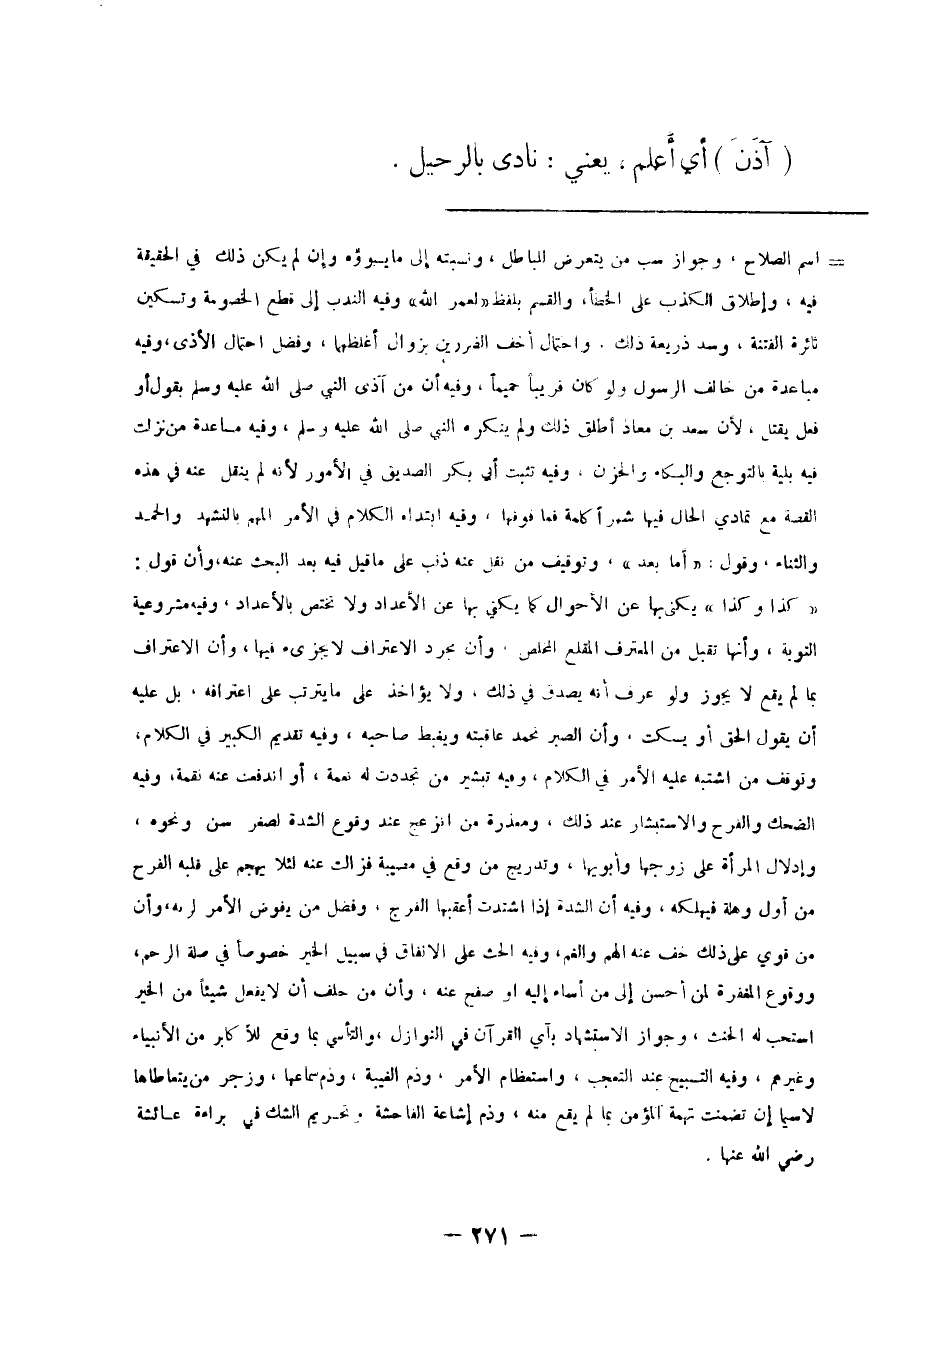 ( آذَنَ ) أي أَعلم ، يعني : نادى بالرحيل .
= اسم الصلاح ، وجواز سب من يتعرض للباطل ، ونسبته إلى مايسوؤه وإن لم يكن ذلك في الحقيقة
فيه ، وإطلاق الكذب على الخطأ، والقسم بلفظ «لعمر الله» وفيه الندب إلى قطع الخصومة وتسكين
ثائرة الفتنة ، وسد ذريعة ذلك . واحتمال أخف الضررين بزوال أغلظهما ، وفضل احتمال الأذى، وفيه
مباعدة من خالف الرسول ولو كان قريباً حميماً ، وفيه أن من آذى النبي صلى الله عليه وسلم بقول أو
فعل يقتل ، لأن سعد بن معاذ أطلق ذلك ولم ينكره النبي صلى الله عليه وسلم ، وفيه مساعدة من نزلت
فيه بلية بالتوجع والبكاء والحزن ، وفيه تثبت أبي بكر الصديق في الأمور لأنه لم ينقل عنه في هذه
القصة مع تمادي الحال فيها شهراً كلمة فما فوقها ، وفيه ابتداء الكلام في الأمر المهم بالتشهد والحمد
والثناء ، وقول : « أما بعد » ، وتوقيف من نقل عنه ذنب على ماقيل فيه بعد البحث عنه، وأن قول :
« كذا وكذا » يكنى بها عن الأحوال كما يكنى بها عن الأعداد ولا تختص بالأعداد ، وفيه مشروعية
التوبة ، وأنها تقبل من المعترف المقلع المخلص ، وأن مجرد الاعتراف لايجزىء فيها ، وأن الاعتراف
بما لم يقع لا يجوز ولو عرف أنه يصدق في ذلك ، ولا يؤاخذ على مايترتب على اعترافه ، بل عليه
أن يقول الحق أو يسكت ، وأن الصبر تحمد عاقبته ويغبط صاحبه ، وفيه تقديم الكبير في الكلام،
وتوقف من اشتبه عليه الأمر في الكلام ، وفيه تبشير من تجددت له نعمة ، أو اندفعت عنه نقمة، وفيه
الضحك والفرح والاستبشار عند ذلك ، ومعذرة من انزعج عند وقوع الشدة لصغر سن ونحوه ،
وإدلال المرأة على زوجها وأبويها ، وتدريج من وقع في مصيبة فزالت عنه لئلا يهجم على قلبه الفرح
من أول وهلة فيهلكه ، وفيه أن الشدة إذا اشتدت أعقبها الفرج ، وفضل من يفوض الأمر لربه، وأن
من قوي على ذلك خف عنه الهم والغم، وفيه الحث على الانفاق في سبيل الخير خصوصاً في صلة الرحم،
ووقوع المغفرة لمن أحسن إلى من أساء إليه او صفح عنه ، وأن من حلف أن لايفعل شيئاً من الخير
استحب له الحنث ، وجواز الاستشهاد بآي القرآن في النوازل ،والتأسي بما وقع للأكابر من الأنبياء
وغيرهم ، وفيه التسبيح عند التعجب ، واستعظام الأمر ، وذم الغيبة ، وذم سماعها ، وزجر من يتعاطاها
لاسيما إن تضمنت تهمة المؤمن بما لم يقع منه ، وذم إشاعة الفاحشة وتحريم الشك في براءة عائشة
رضي الله عنها .
— ٢٧١ —